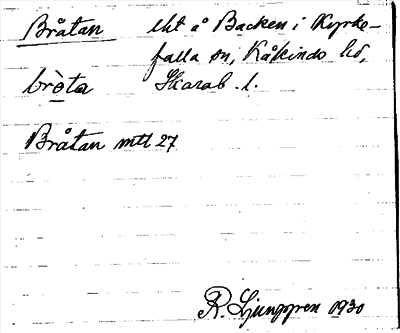 Bråtan lht å Backen i Kyrke-
falla sn, Kåkinds hd,
bròta Skarab. l.
Bråtan mtl 27
R. Ljunggren 1930